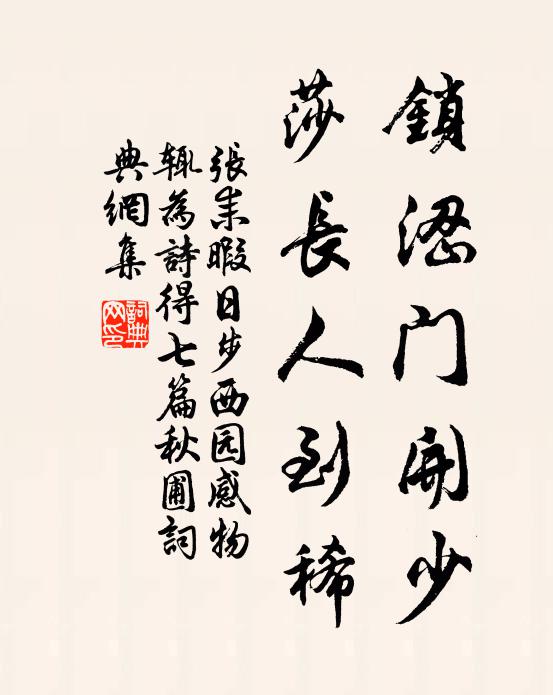 鎖澀門開少
莎長人到稀
張耒暇日步西园感物
輒為詩得七篇秋圃詞
典網集
詞典
网印